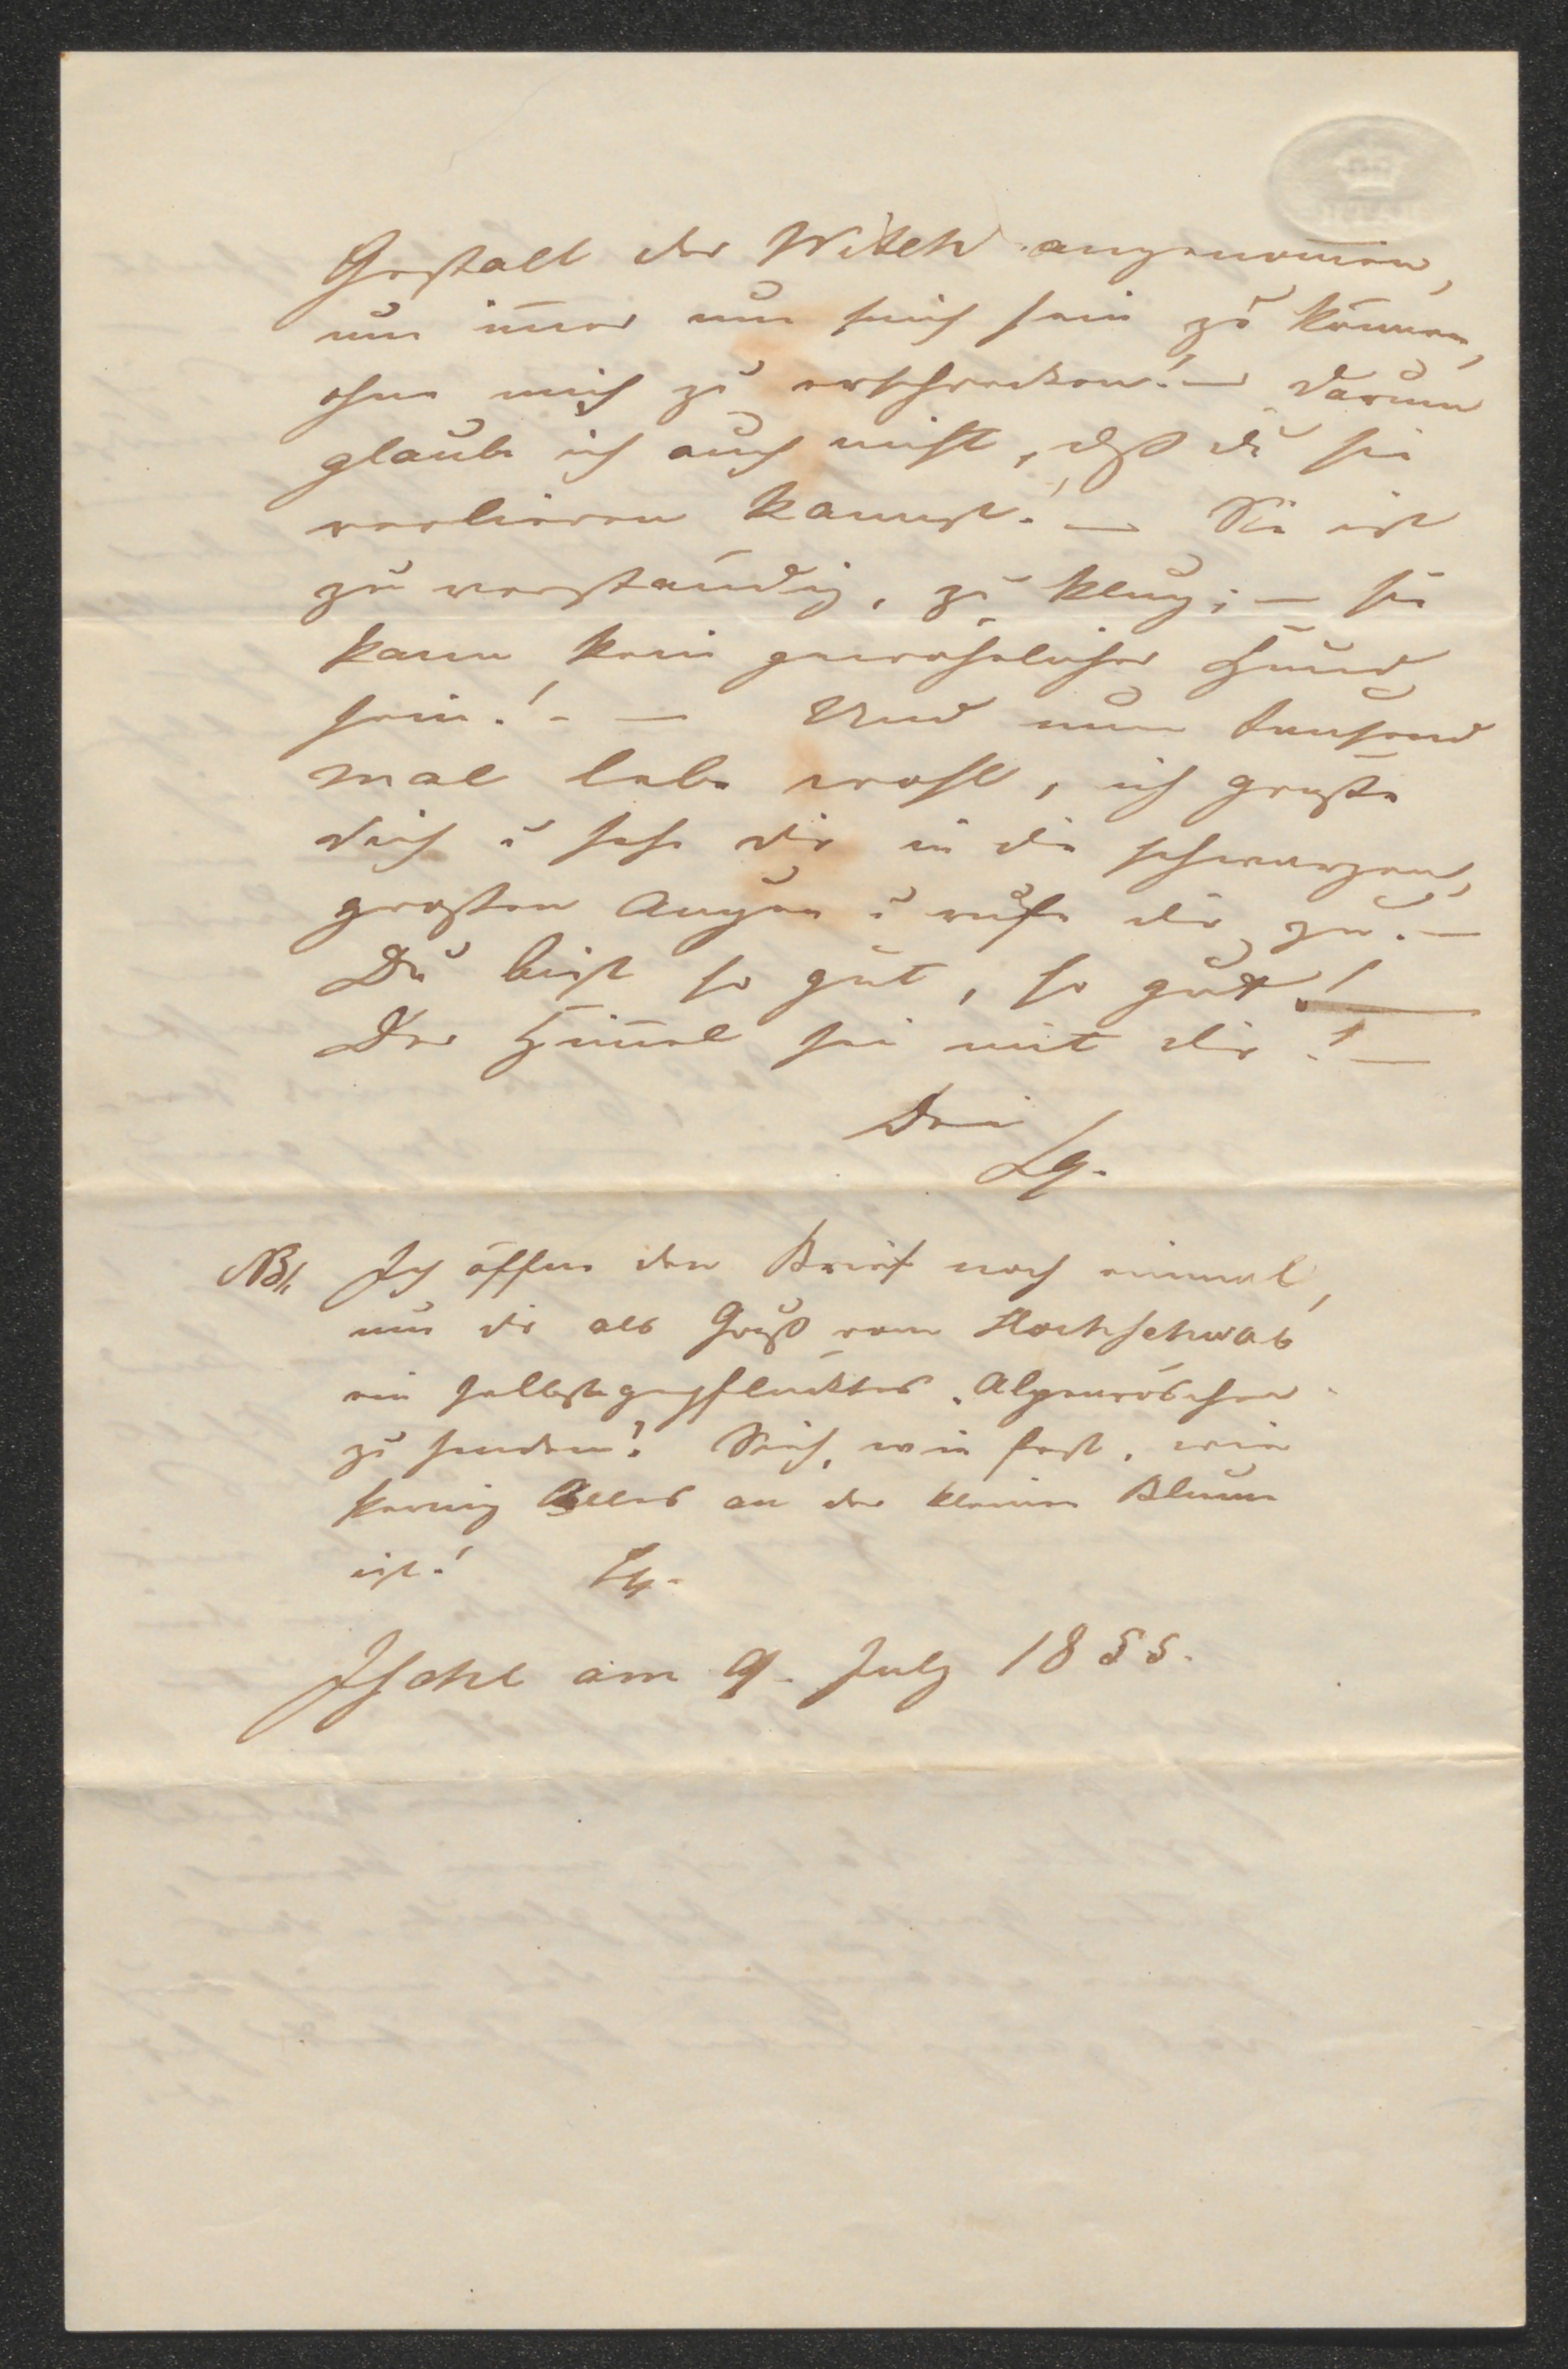 Gestalt der Witch angenom̅en,
um im̅er um mich sein zu können,
ohne mich zu erschrecken! — Darum
glaube ich auch nicht, dß du sie
verlieren kannst! — Sie ist
zu verständig, zu klug; — sie
kann kein gewöhnlicher Hund
sein! - — Und nun tausend
mal lebe wohl, ich grüße
dich u sehe dir in die schwarzen,
großen Augen u rufe dir zu. —
Du bist so gut, so gut! —
Der Him̅el sei mit dir! —
Dein
Lg.
NB. Ich öffne den Brief noch einmal,
um dir als Gruß vom Hochschwab
ein selbstgepflücktes Alpenröschen
zu senden! Sieh, wie fest, wie
kernig Alles an der kleinen Blume
ist! Lg.
Ischl am 9. July 1855.